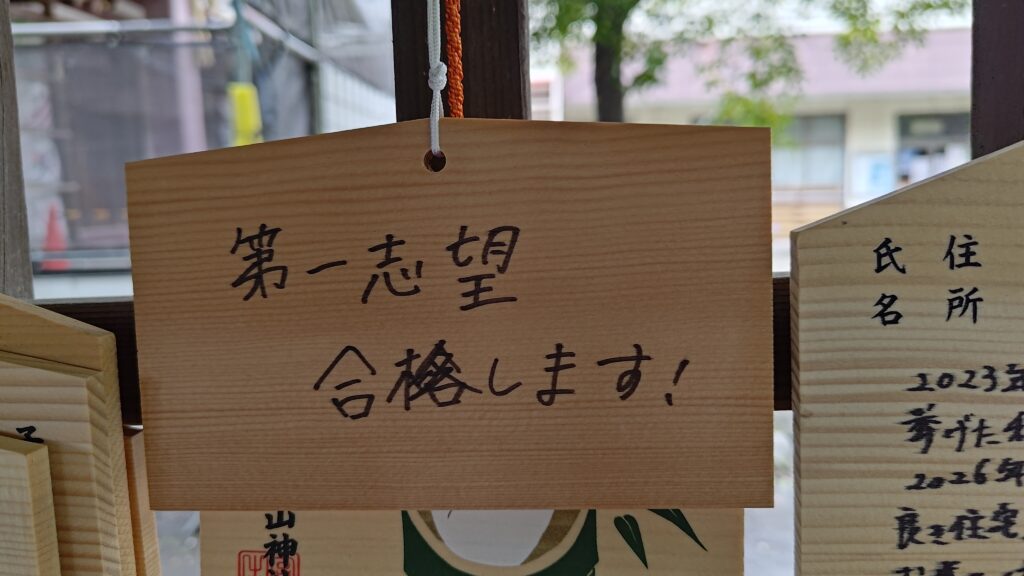 第一志望
合格します!
住所
氏名
2023年
挙げた
2026年
良き住宅
山神